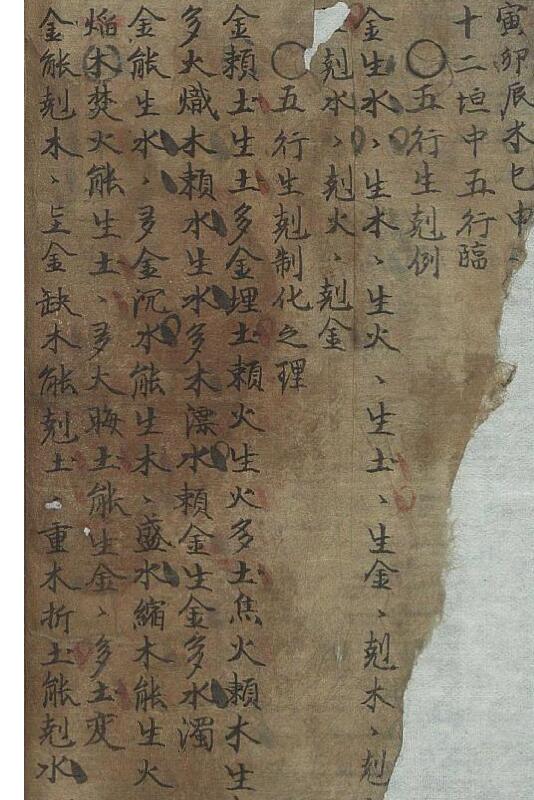 寅卯辰未巳申、
十二垣中五行臨
〇五行生剋例
金生水、生木、生火、生土、生金、剋木、剋
剋水、剋火、剋金
〇五行生剋制化之理
金賴土生土多金埋土賴火生火多土焦火賴木生
多火熾木賴水生水多木漂水賴金生金多水濁
金能生水、多金沉水能生木、盛水縮木能生火
焰木焚火能生土、多火晦土能生金、多土变
金能剋木、坚金缺木能剋土、重木折土能剋水